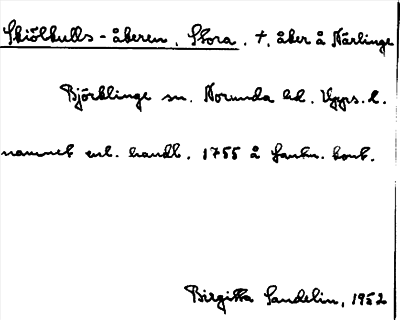 Skiölkulls-åkeren, Stora, †, åker å Närlinge
Björklinge sn. Norunda hd. Upps. l.
namnet enl. handl. 1755 å lantm. kont.
Birgitta Sandelin, 1952